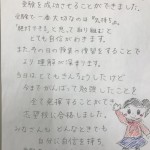 受験を成功させることができました。
受験で一番大切なのは「気持ち」。
「絶対できる」と思って取り組むと
とても自信がわきます。
また今の自分の授業の復習をすることで
より理解が深まります。
当日はとてもきんちょうしたけど
今までがんばって勉強したことを
全て発揮することができて
志望校に合格しました。
みなさんも どんなときでも
自分に自信を持ち